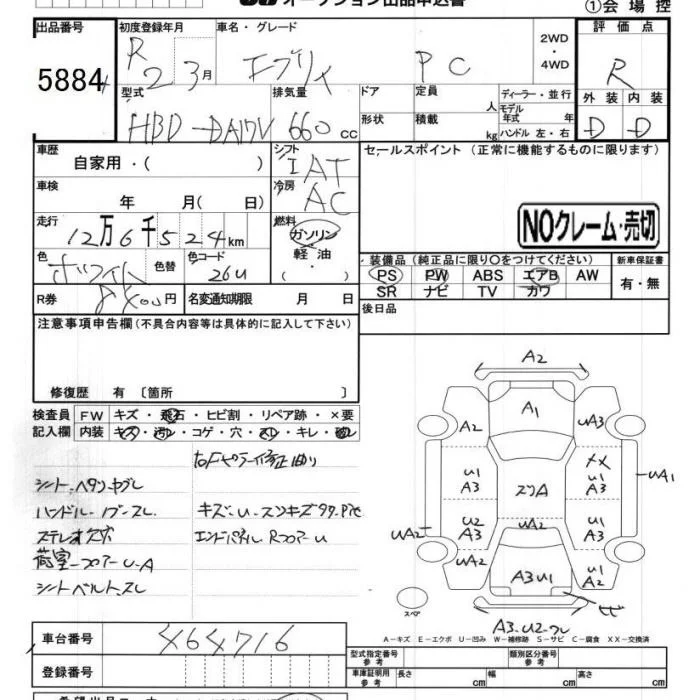 オークション出品申込書
①会場控
出品番号 初度登録年月 車名・グレード 2WD・4WD 評価点
5884 R2 3月 エブリイ PC R
型式 排気量 ドア 定員 人 ディーラー・並行 外装 内装
モデル年式 年
HBD-DA17V 660cc 形状 積載 kg ハンドル 左・右 D D
車歴 シフト セールスポイント (正常に機能するものに限ります)
自家用・( ) IAT
車検 冷房
年 月(日) AC
走行 燃料 NOクレーム・売切
12万6千524km ガソリン
軽油
・( )
色 色替 色コード 装備品 (純正品に限り○をつけてください) 新車保証書
ホワイト 26U PS PW ABS エアB AW 有・無
R券 8400円 名変通知期限 月 日 SR ナビ TV カワ
注意事項申告欄(不具合内容等は具体的に記入して下さい) 後日品
修復歴 有 〔箇所 〕
検査員記入欄 FW キズ・飛石・ヒビ割・リペア跡・×要
内装 キズ・汚レ・コゲ・穴・スレ・キレ・破レ
シート・ヘタリ・ヤブレ
ステレオ欠品
荷室・フロアーU・A
シートベルト・スレ
エンドパネル・RフロアーU
A2
A1
A2 UA3
U1 A3 XX U1 A3 UA1
ズリA
UA2 U2 A3 UA2 U1 A3
UA2 A3U1 U1 A2
スペア
A-キズ E-エクボ U-凹み W-補修跡 S-サビ C-腐食 XX-交換済
車台番号 464716
型式指定番号 参考 類別区分番号 参考
登録番号 車庫証明用 参考 長さ cm 幅 cm 高さ cm